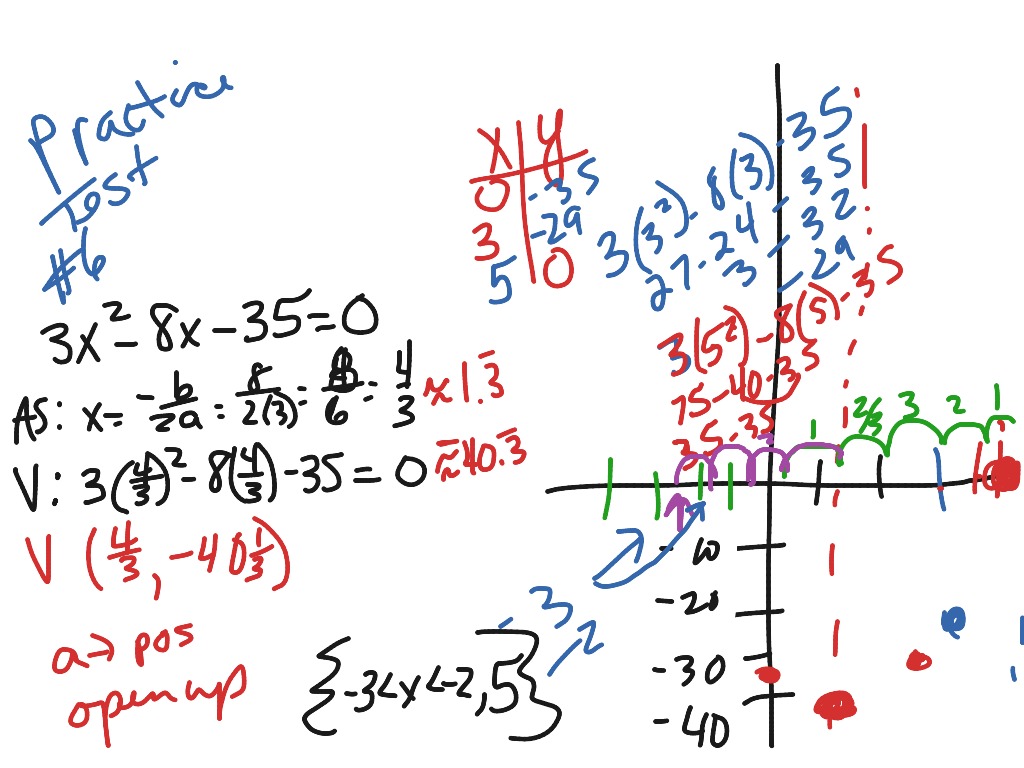 Practice
Test
#6
3x² - 8x - 35 = 0
AS: x = -b/2a = 8/2(3) = 8/6 = 4/3 ≈ 1.3
V: 3(4/3)² - 8(4/3) - 35 = 0 ≈ 40.3
V (4/3, -40 1/3)
a → pos
open up
{-3 < x < -2, 5}
-3
-2
x | y
0 | -35
3 | -29
5 | 0
3(3²) - 8(3) - 35
27 - 24 - 35
3 - 32
-29
3(5²) - 8(5) - 35
75 - 40 - 35
35 - 35
1 2/3 3 2 1
-10
-20
-30
-40